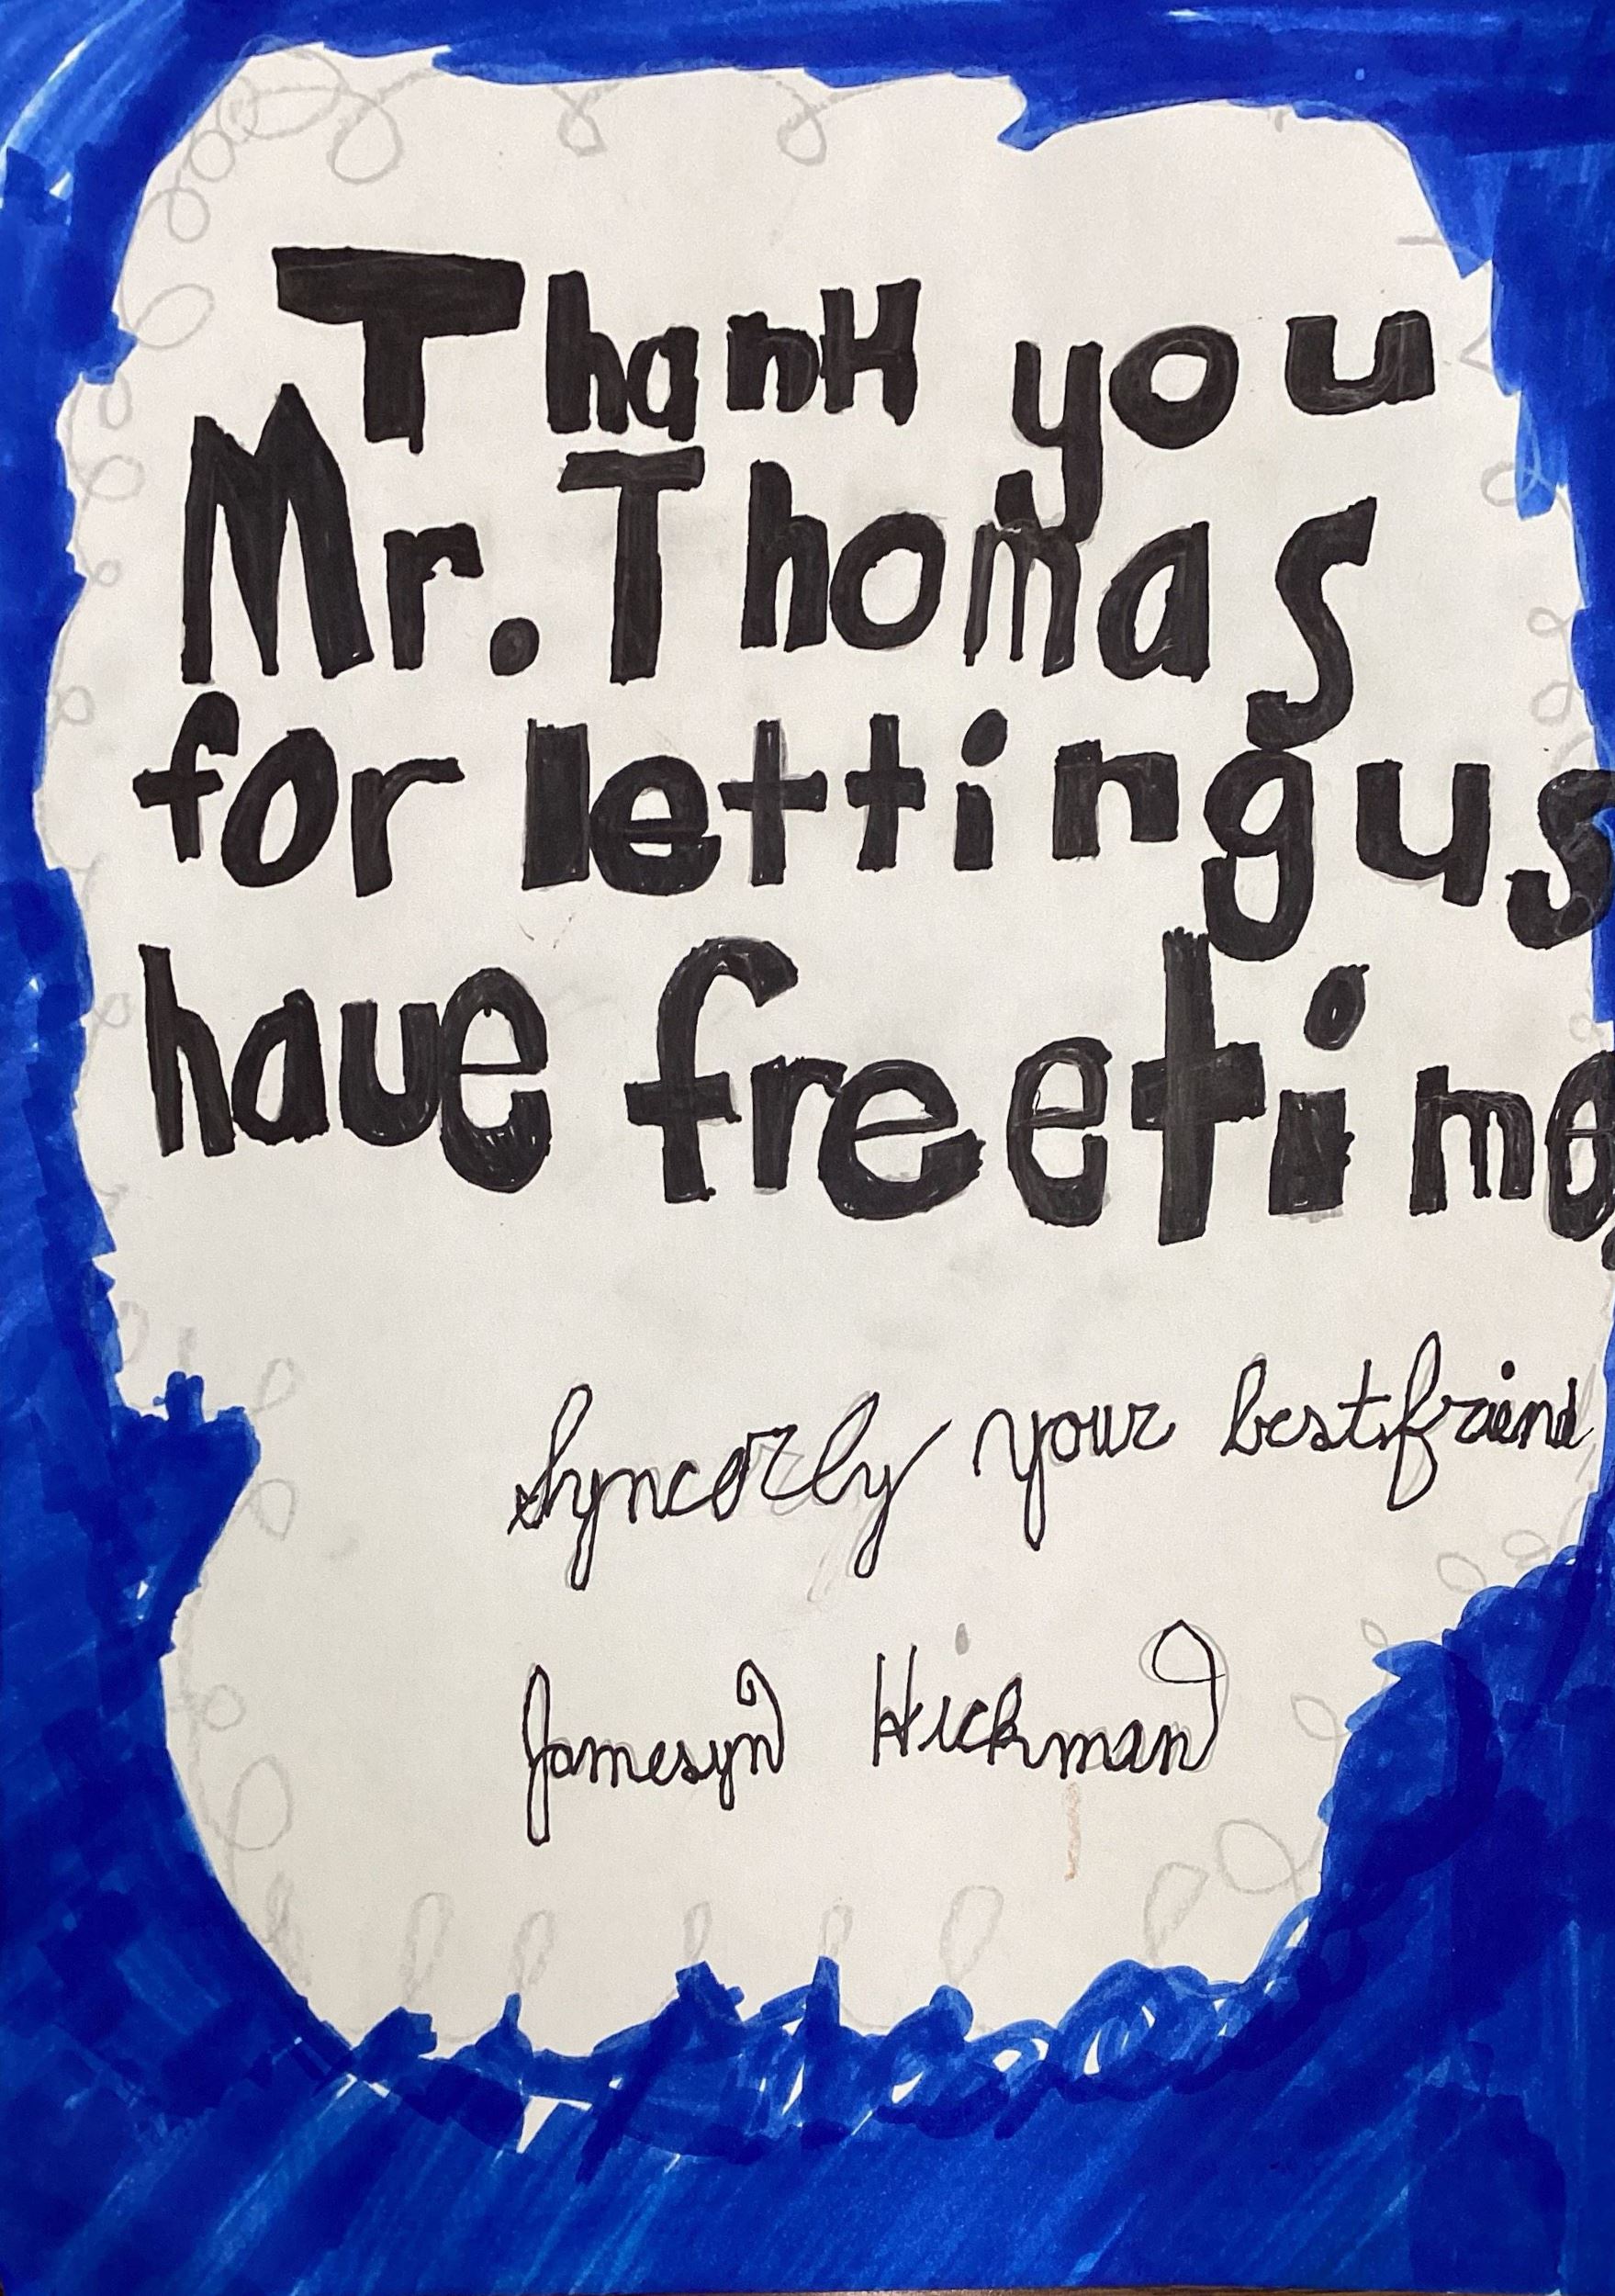 Thank you
Mr. Thomas
for letting us
have freetime.
Syncerly your bestfriend
Jamesyn Hickman